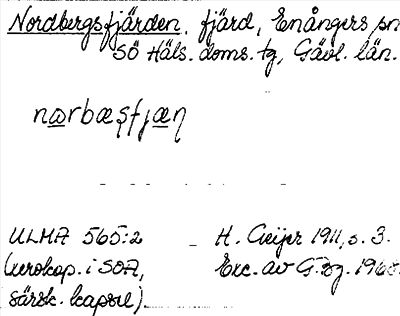 Nordbergsfjärden, fjärd, Enångers sn
SÖ Häls. doms. tg, Gävl. län.
nɷrbæʂfjæɳ
ULMA 565:2 H. Geijer 1911, s. 3.
(xerokop. i SOA, Exc. av G.
särsk. kapsel)